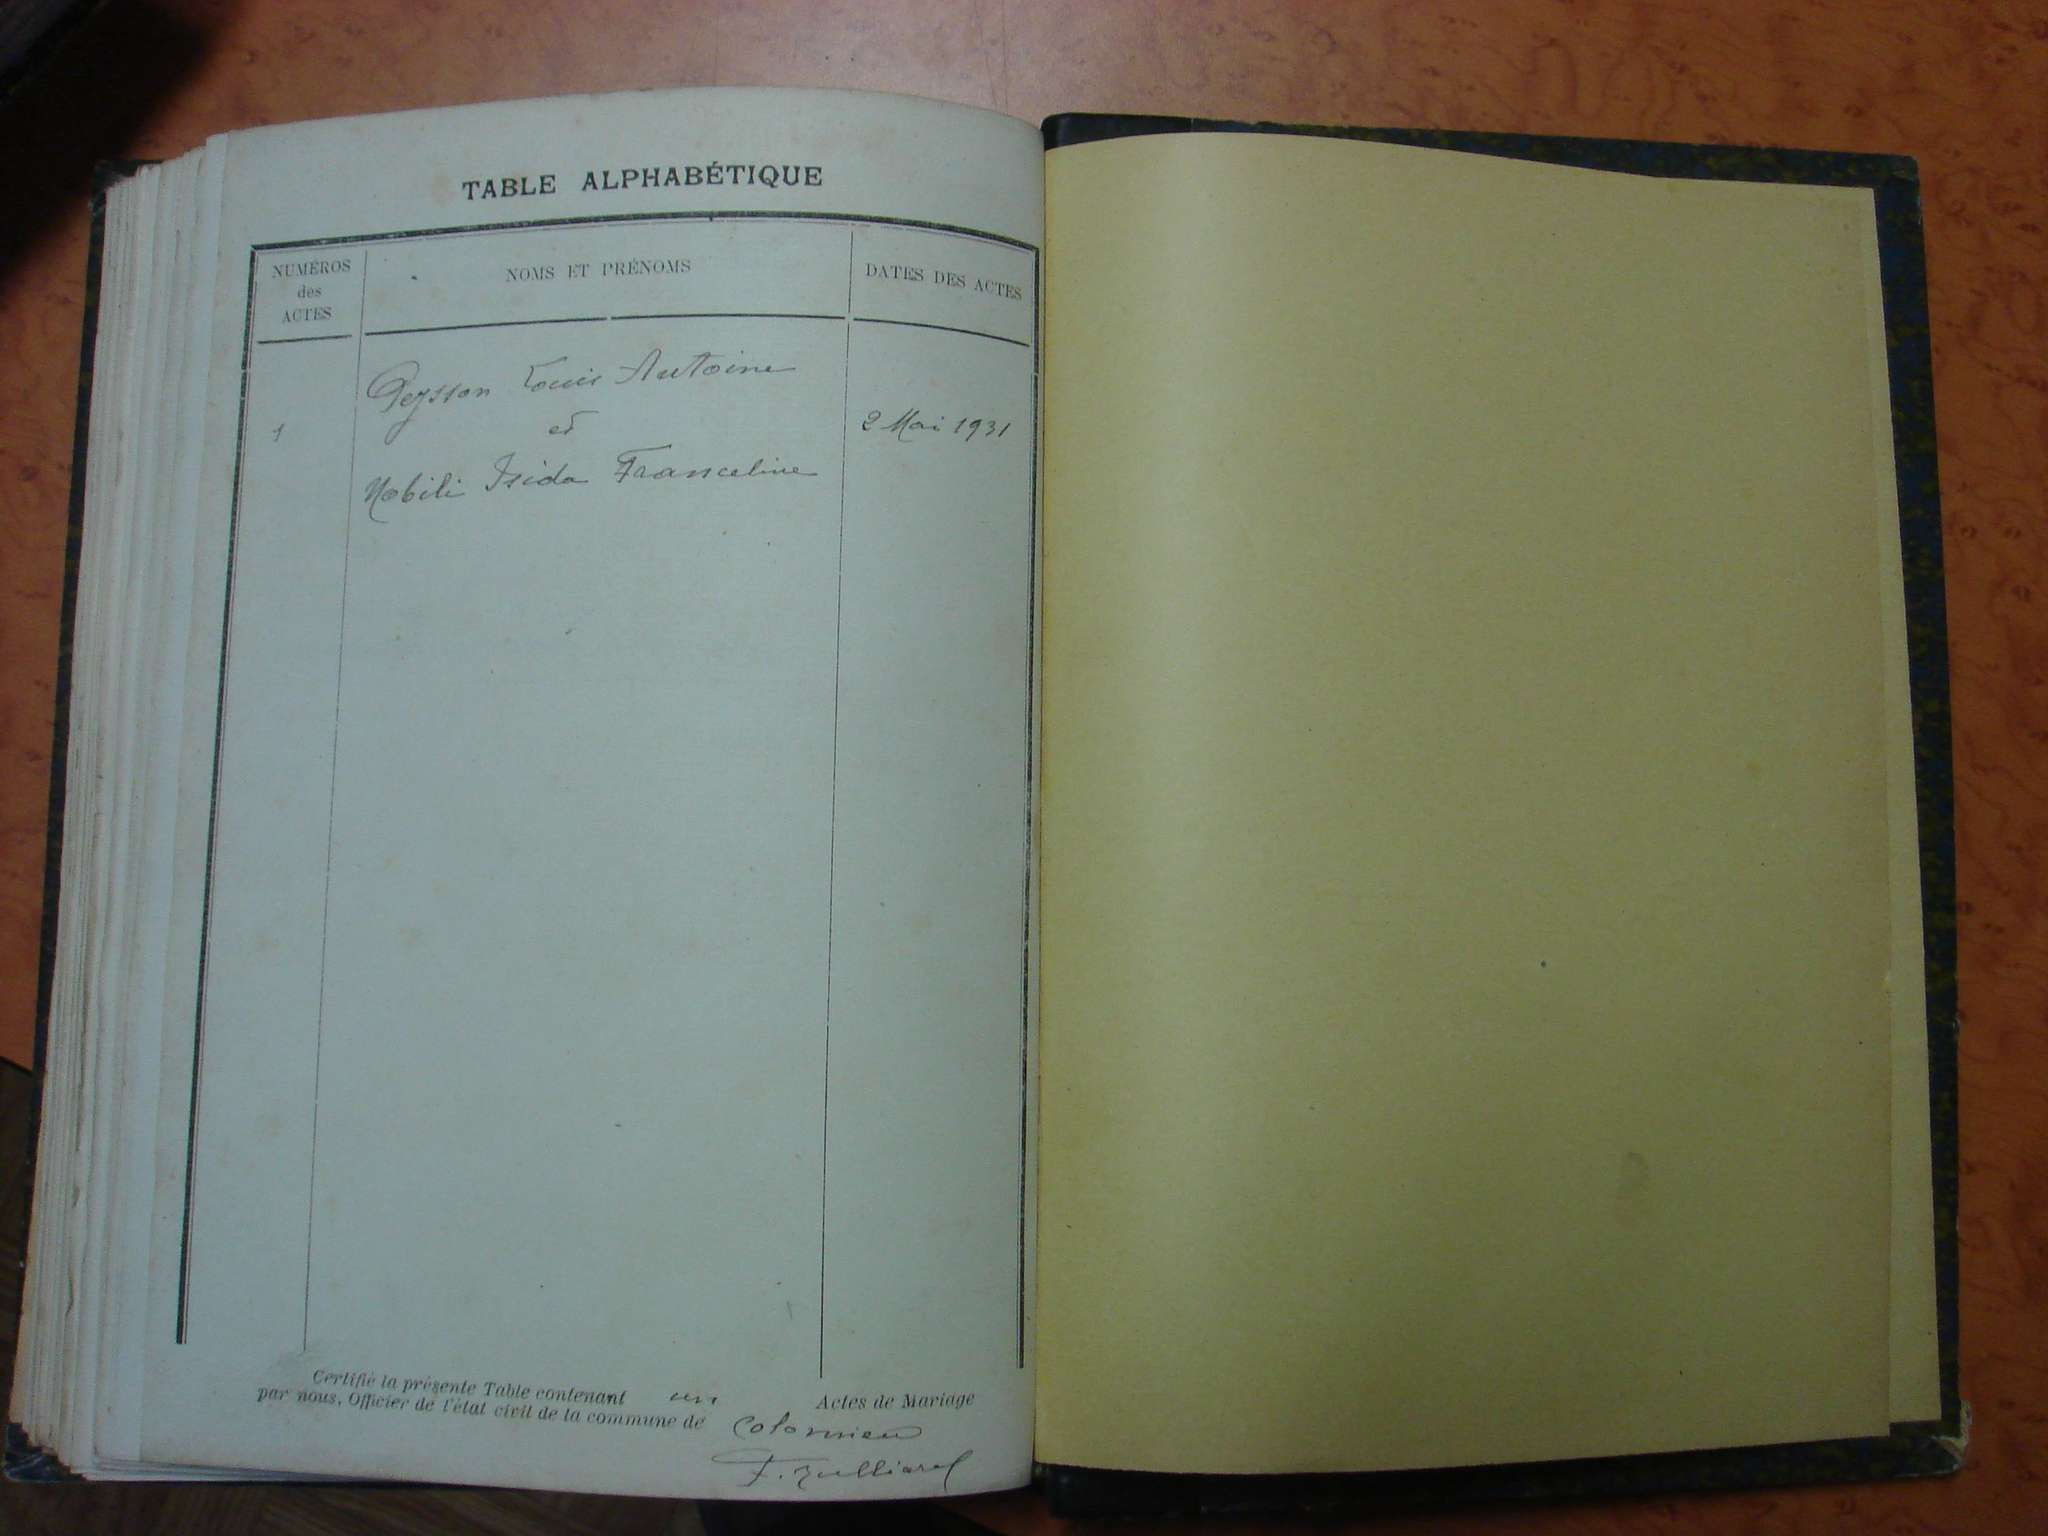 TABLE ALPHABÉTIQUE
NUMÉROS
des
ACTES
NOMS ET PRÉNOMS
DATES DES ACTES
Peysson Louis Antoine
1
et
2 Mai 1931
Nobili Isida Franceline
Certifié la présente Table contenant un Actes de Mariage
par nous, Officier de l'état civil de la commune de Colomieu
F. Jullierat